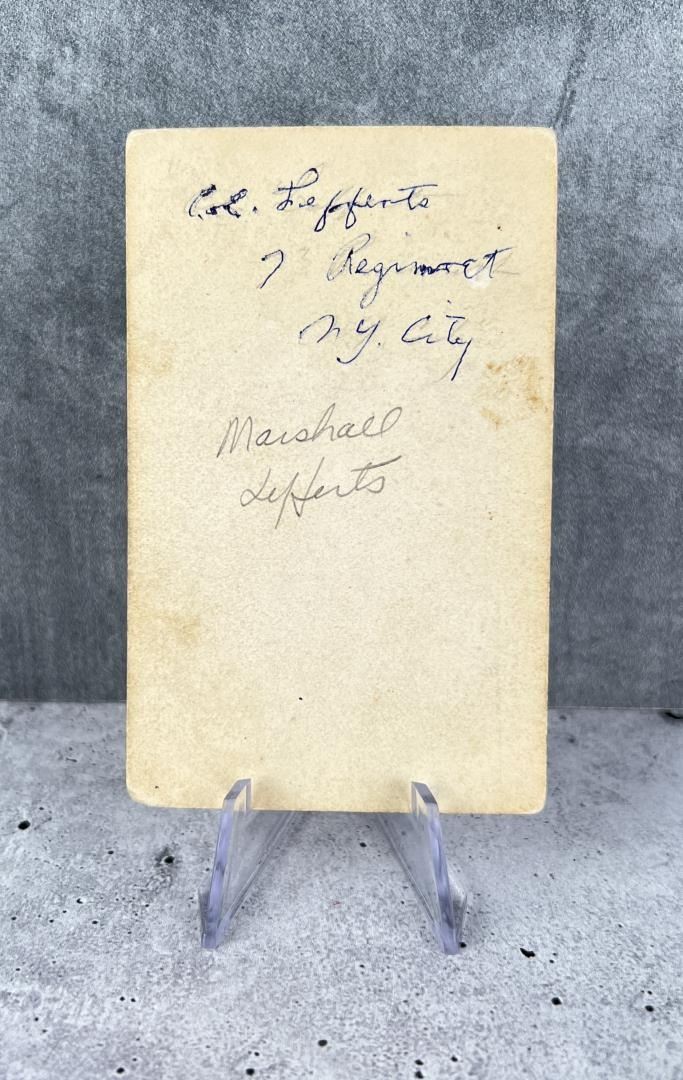 Col. Lefferts
7 Regiment
N.Y. City
Marshall
Lefferts